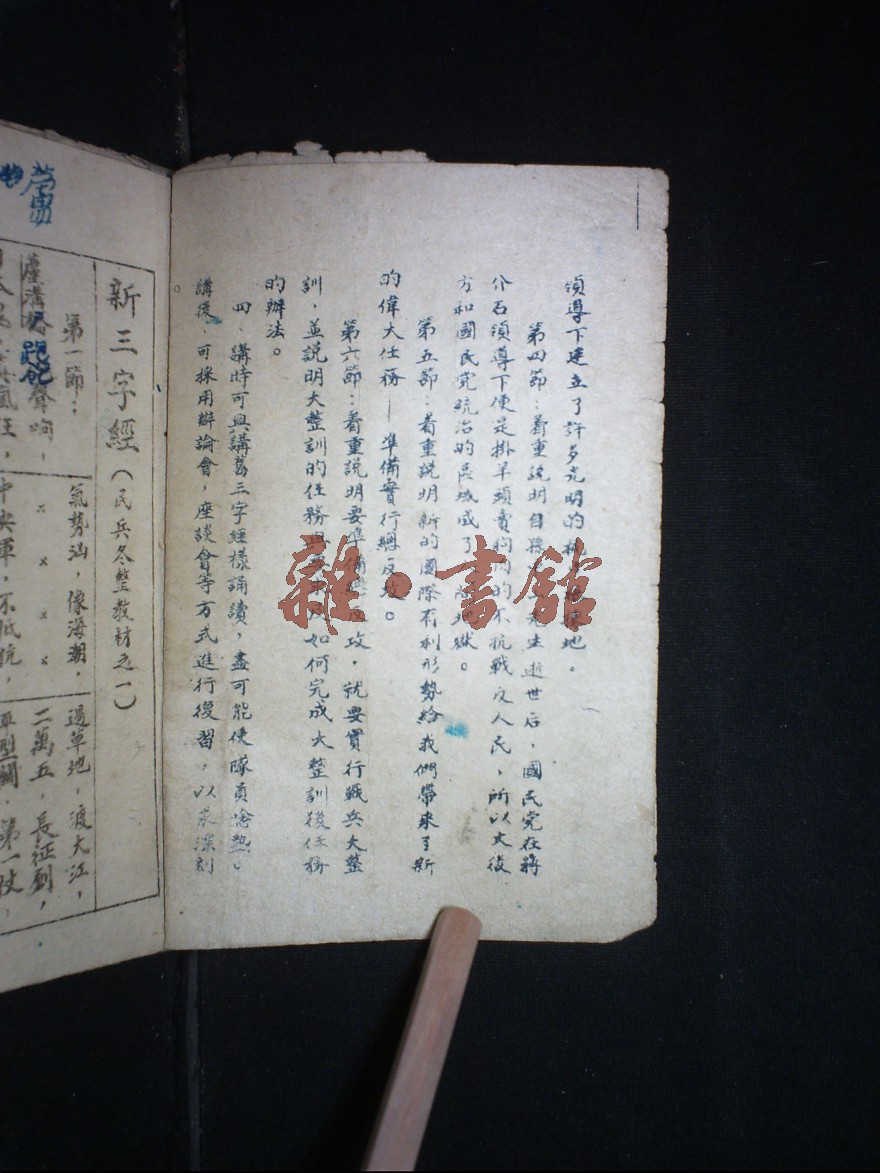 領導下建立了許多光明的抗地。
第四節：着重說明自孫先生逝世后，國民党在蔣
介石領導下便是掛羊頭賣狗肉的不抗戰反人民，所以大後
方和國民党統治的區域成了獄。
第五節：着重說明新的國際有利形勢給我們帶來了新
的偉大任務—準備實行總反攻。
第六節：着重說明要準備總反攻，就要實行戰兵大整
訓，並說明大整訓的任務與如何完成大整訓後任務
的辦法。
四、講時可與講舊三字經樣誦讀，盡可能使隊員唸熟。
講後、可採用辯論會，座談會等方式進行復習，以求深刻
。
新三字經（民兵冬整教材之一）
第一節：
氣勢汹，像海潮，
過草地，渡大江，
蘆溝橋 炮聲响，
x x x x
二萬五，長征到，
瘋狂，
中央軍，不抵抗，
平型關，第一仗，
雜·書館